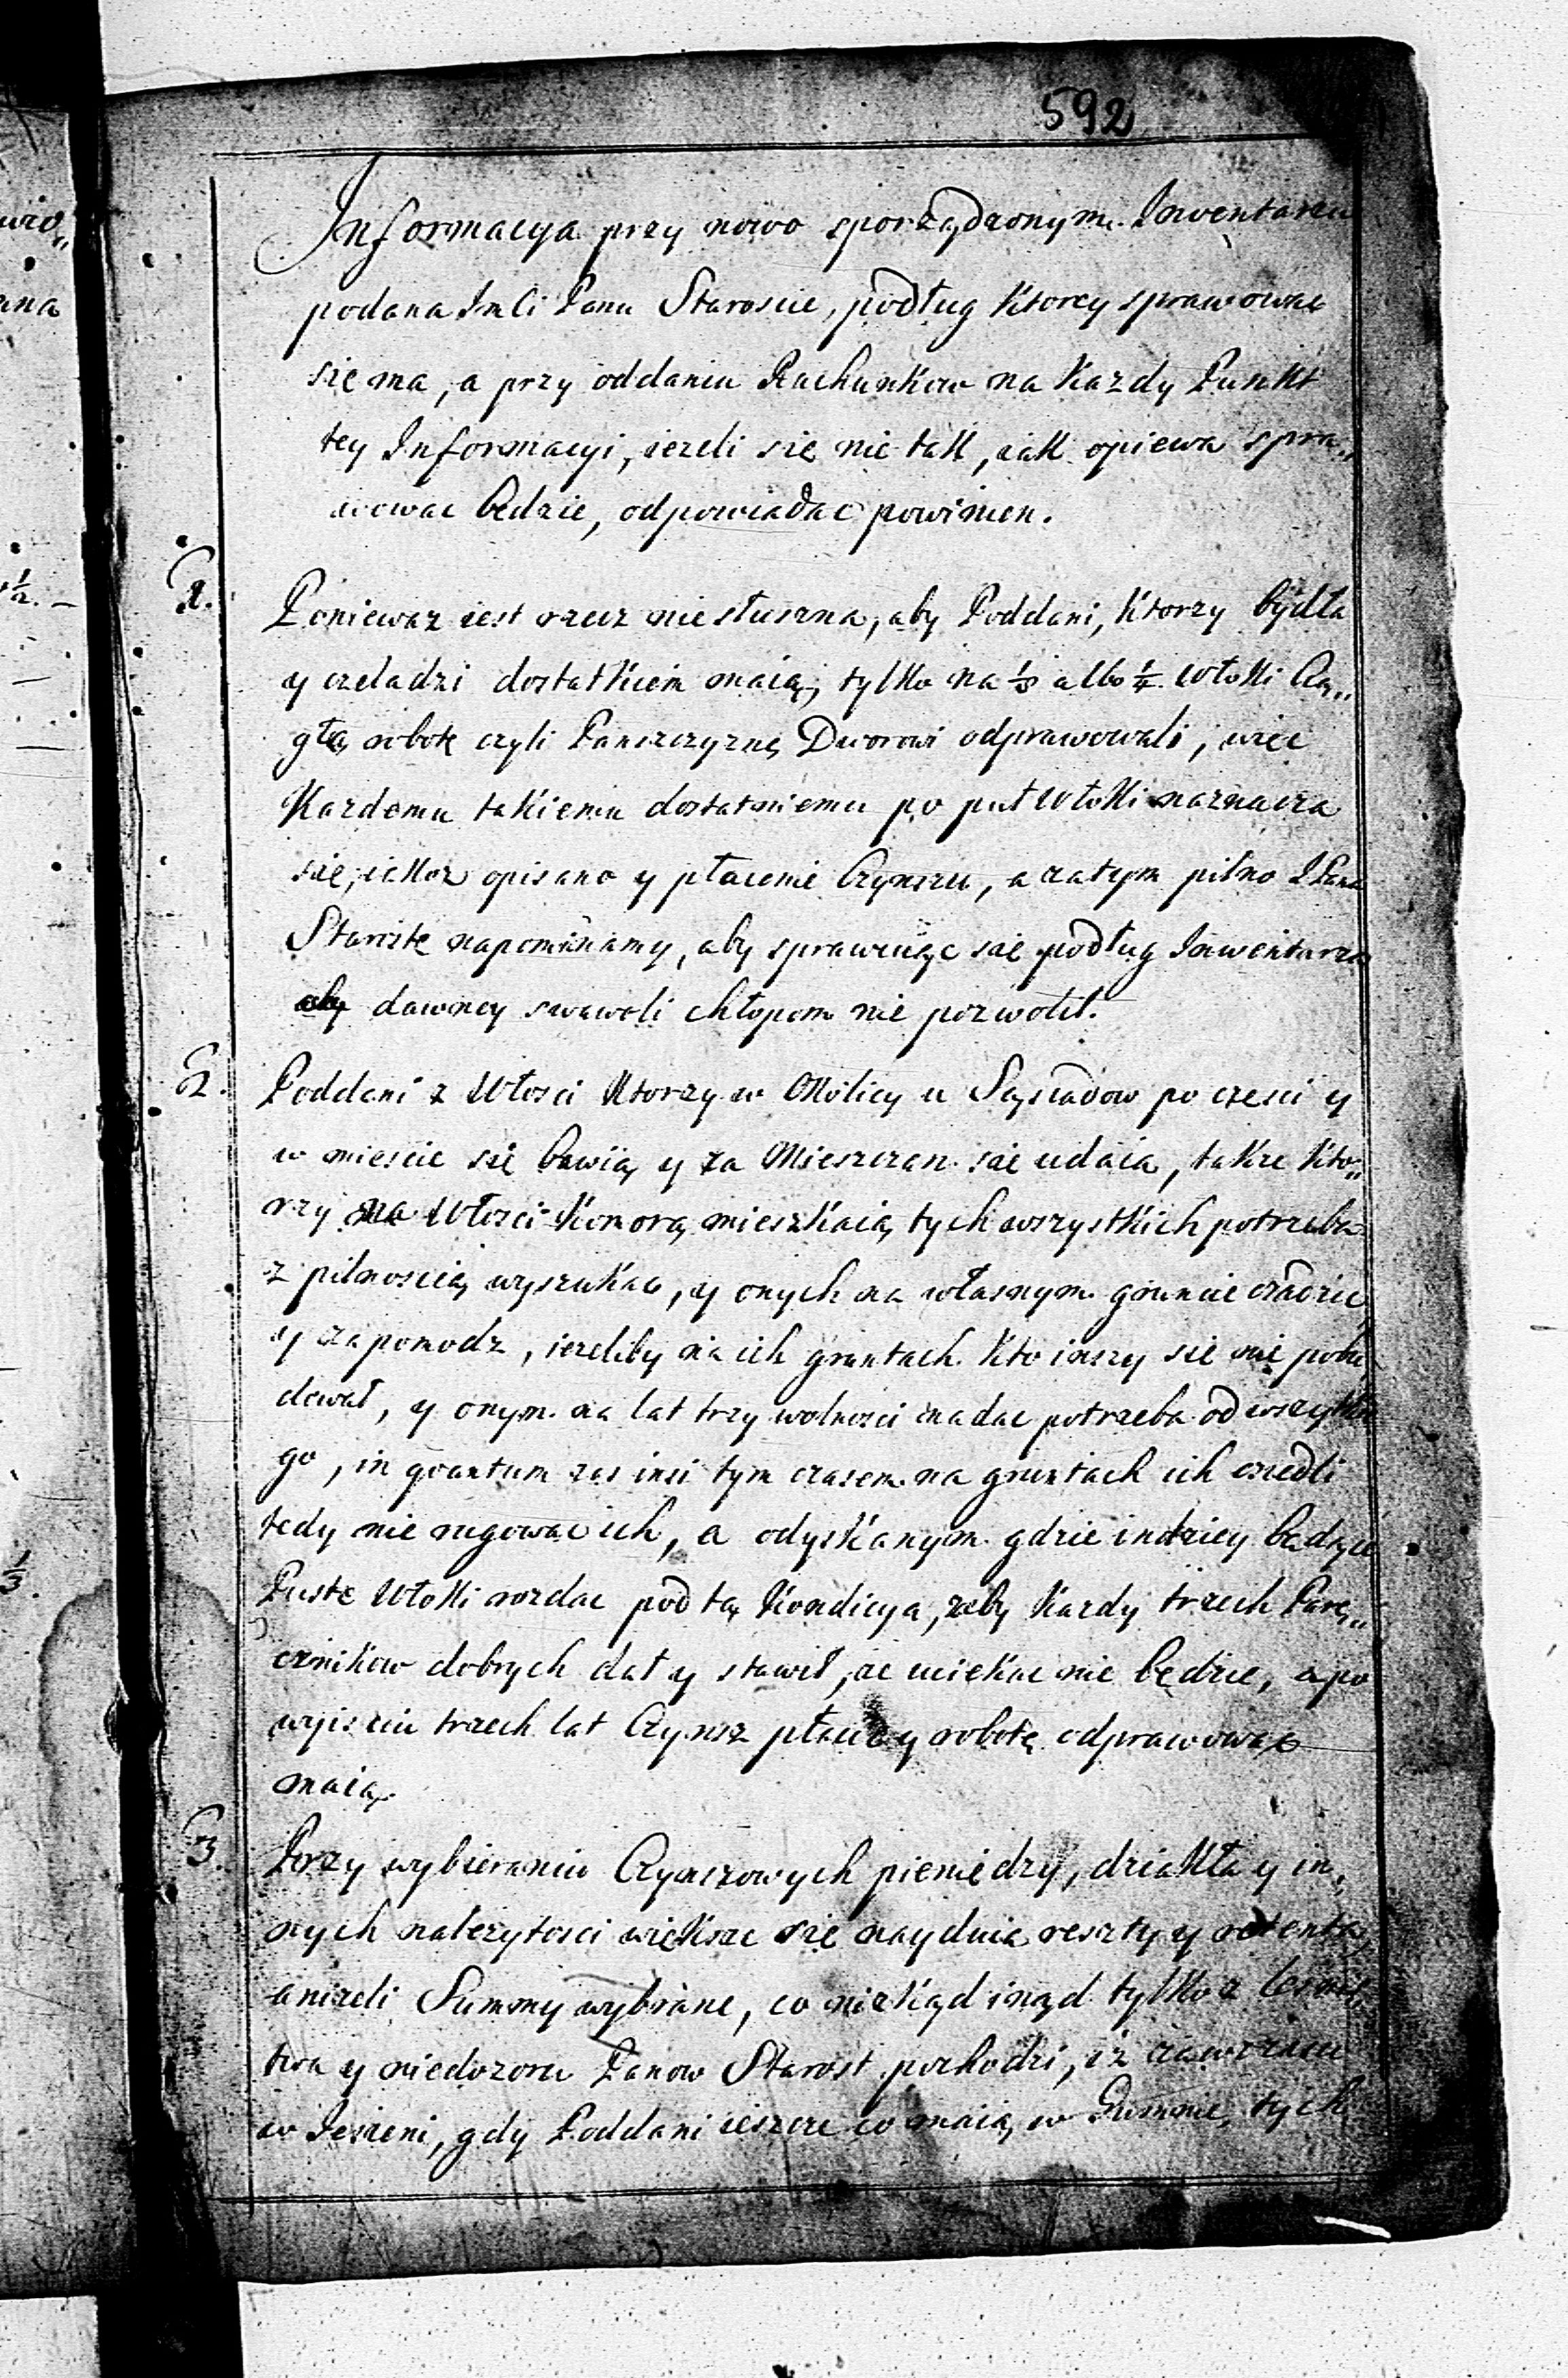 592
Informacya przy nowo sporządzonym Inwentarzu
podana Imci Panu Staroscie, podług Ktorey sprawowac
się ma, a przy oddaniu Rachunkow na Kazdy Punkt
tey Informacyi, iezeli się nie tak, iak opiewa spra„
wowac będzie, odpowiadac powinien.
1. Poniewaz iest rzecz nie słuszna, aby Poddani, Ktorzy bydła
y czeladzi dostatkiem maią, tylko na ⅛ albo ¼ Włoki Cią„
głą robotę czyli Panszczyznę Dworowi odprawowali, więc
Kazdemu takiemu dostatniemu po puł Włoki naznacza
się, iakoz opisano y płacenie Czynszu, a zatym pilno IPana
Starostę napominamy, aby sprawuiąc się podług Inwentarza
aby dawney swawoli chłopom nie pozwolił.
2. Poddani z Włosci Ktorzy w Okolicy u Sąsiadow po częsci y
w miescie się bawią y za Mieszczan się udaią, takze Kto„
rzy na Włosci Komorą mieszkaią, tych wszystkich potrzeba
z pilnoscią wyszukac, y onych na własnym gruncie osadzic
y zapomodz, iezeliby na ich gruntach Kto inszy się nie pobu
dował, y onym na lat trzy wolnosci nadac potrzeba od wszytkie
go, in quantum zas insi tym czasem na gruntach ich osiedli
tedy nie rugowac ich, a odyskanym gdzie indziey będące
Puste Włoki rozdac pod tą Kondicyą, zeby Kazdy trzech Parę„
cznikow dobrych dał y stawił, ze uciekac nie będzie, a po
wyisciu trzech lat Czynsz płacic y robotę odprawowac
maią.
3. Przy wybieraniu Czynszowych pieniędzy, dziakła y in„
nych nalezytosci większe się nayduią reszty y retenta,
anizeli Summy wybrane, co niezkąd inąd tylko z
twa y niedozoru Panow Starost pochodzi, iz zawczasu
w Jesieni, gdy Poddani ieszcze co maią w Gumnie, tych